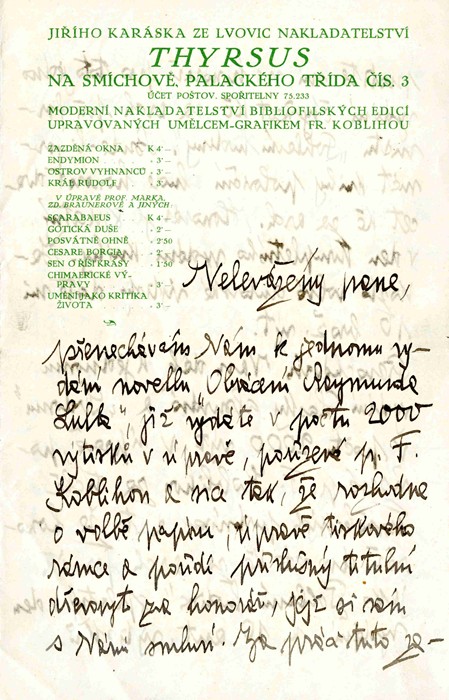 JIŘÍHO KARÁSKA ZE LVOVIC NAKLADATELSTVÍ
THYRSUS
NA SMÍCHOVĚ, PALACKÉHO TŘÍDA ČÍS. 3
ÚČET POŠTOV. SPOŘITELNY 75.233
MODERNÍ NAKLADATELSTVÍ BIBLIOFILSKÝCH EDICÍ
UPRAVOVANÝCH UMĚLCEM-GRAFIKEM FR. KOBLIHOU
ZAZDĚNÁ OKNA K 4·—
ENDYMION „ 3·—
OSTROV VYHNANCŮ „ 3·—
KRÁL RUDOLF „ 3·—
V ÚPRAVĚ PROF. MARKA,
ZD. BRAUNEROVÉ A JINÝCH:
SCARABAEUS K 4·—
GOTICKÁ DUŠE „ 2·—
POSVÁTNÉ OHNĚ „ 2·50
CESARE BORGIA „ 2·—
SEN O ŘÍŠI KRÁSY „ 1·50
CHIMAERICKÉ VÝ-
PRAVY „ 3·—
UMĚNÍ JAKO KRITIKA
ŽIVOTA „ 3·—
Velevážený pane,
přenechávám Vám k jednomu vy-
dání novellu „Obrácení Raymunda
Lulla“, již vydáte v počtu 2000
výtisků v úpravě, pořízené p. F.
Koblihou a sice tak, že rozhodne
o volbě papíru, úpravě tiskového
rámce a pořídí příslušný titulní
dřevoryt za honorář, jejž si sám
s Vámi smluví. Za práci tuto za-